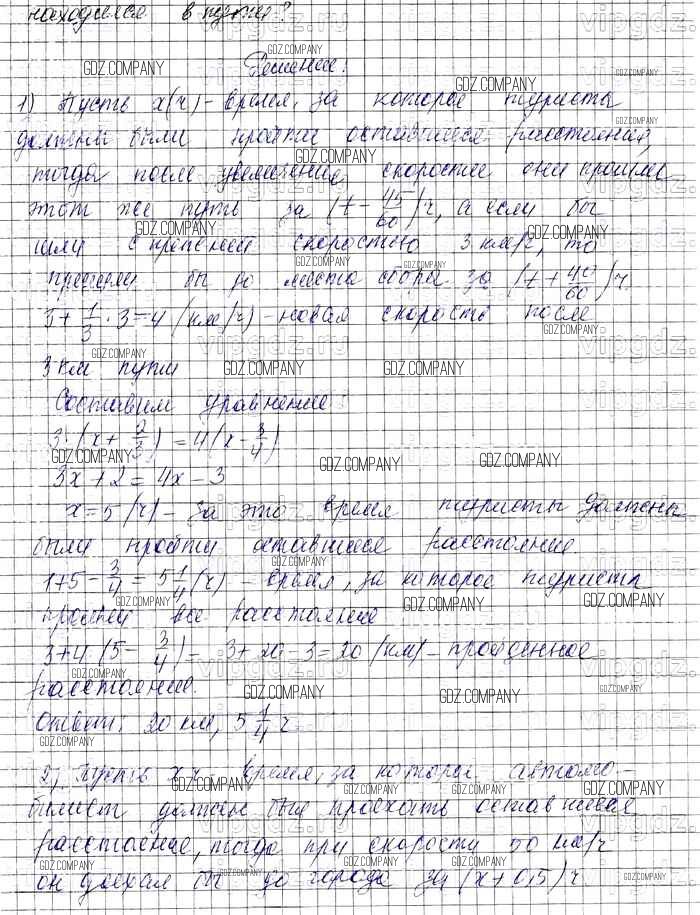 находился в пути?
Решение:
1) Пусть x(ч) - время, за которое туристы
должны были пройти оставшееся расстояние,
тогда после увеличения скорости они прошли
этот же путь за (t - 45/60) ч, а если бы
шли с прежней скоростью 3 км/ч, то
пришли бы до места сбора за (t + 40/60) ч
3 + 1/3 · 3 = 4 (км/ч) - новая скорость после
3 км пути
Составим уравнение:
3 · (x + 2/3) = 4(x - 3/4)
3x + 2 = 4x - 3
x = 5 (ч) - за это время туристы должны
были пройти оставшееся расстояние
1 + 5 - 3/4 = 5 1/4 (ч) - время, за которое туристы
прошли все расстояние
3 + 4 (5 - 3/4) = 3 + 20 - 3 = 20 (км) - пройденное
расстояние.
Ответ: 20 км, 5 1/4 ч.
2) Пусть x ч - время, за которое автомо-
билист должен был проехать оставшееся
расстояние, тогда при скорости 50 км/ч
он доехал бы до города за (x + 0,5) ч
GDZ.COMPANY
vipgdz.ru